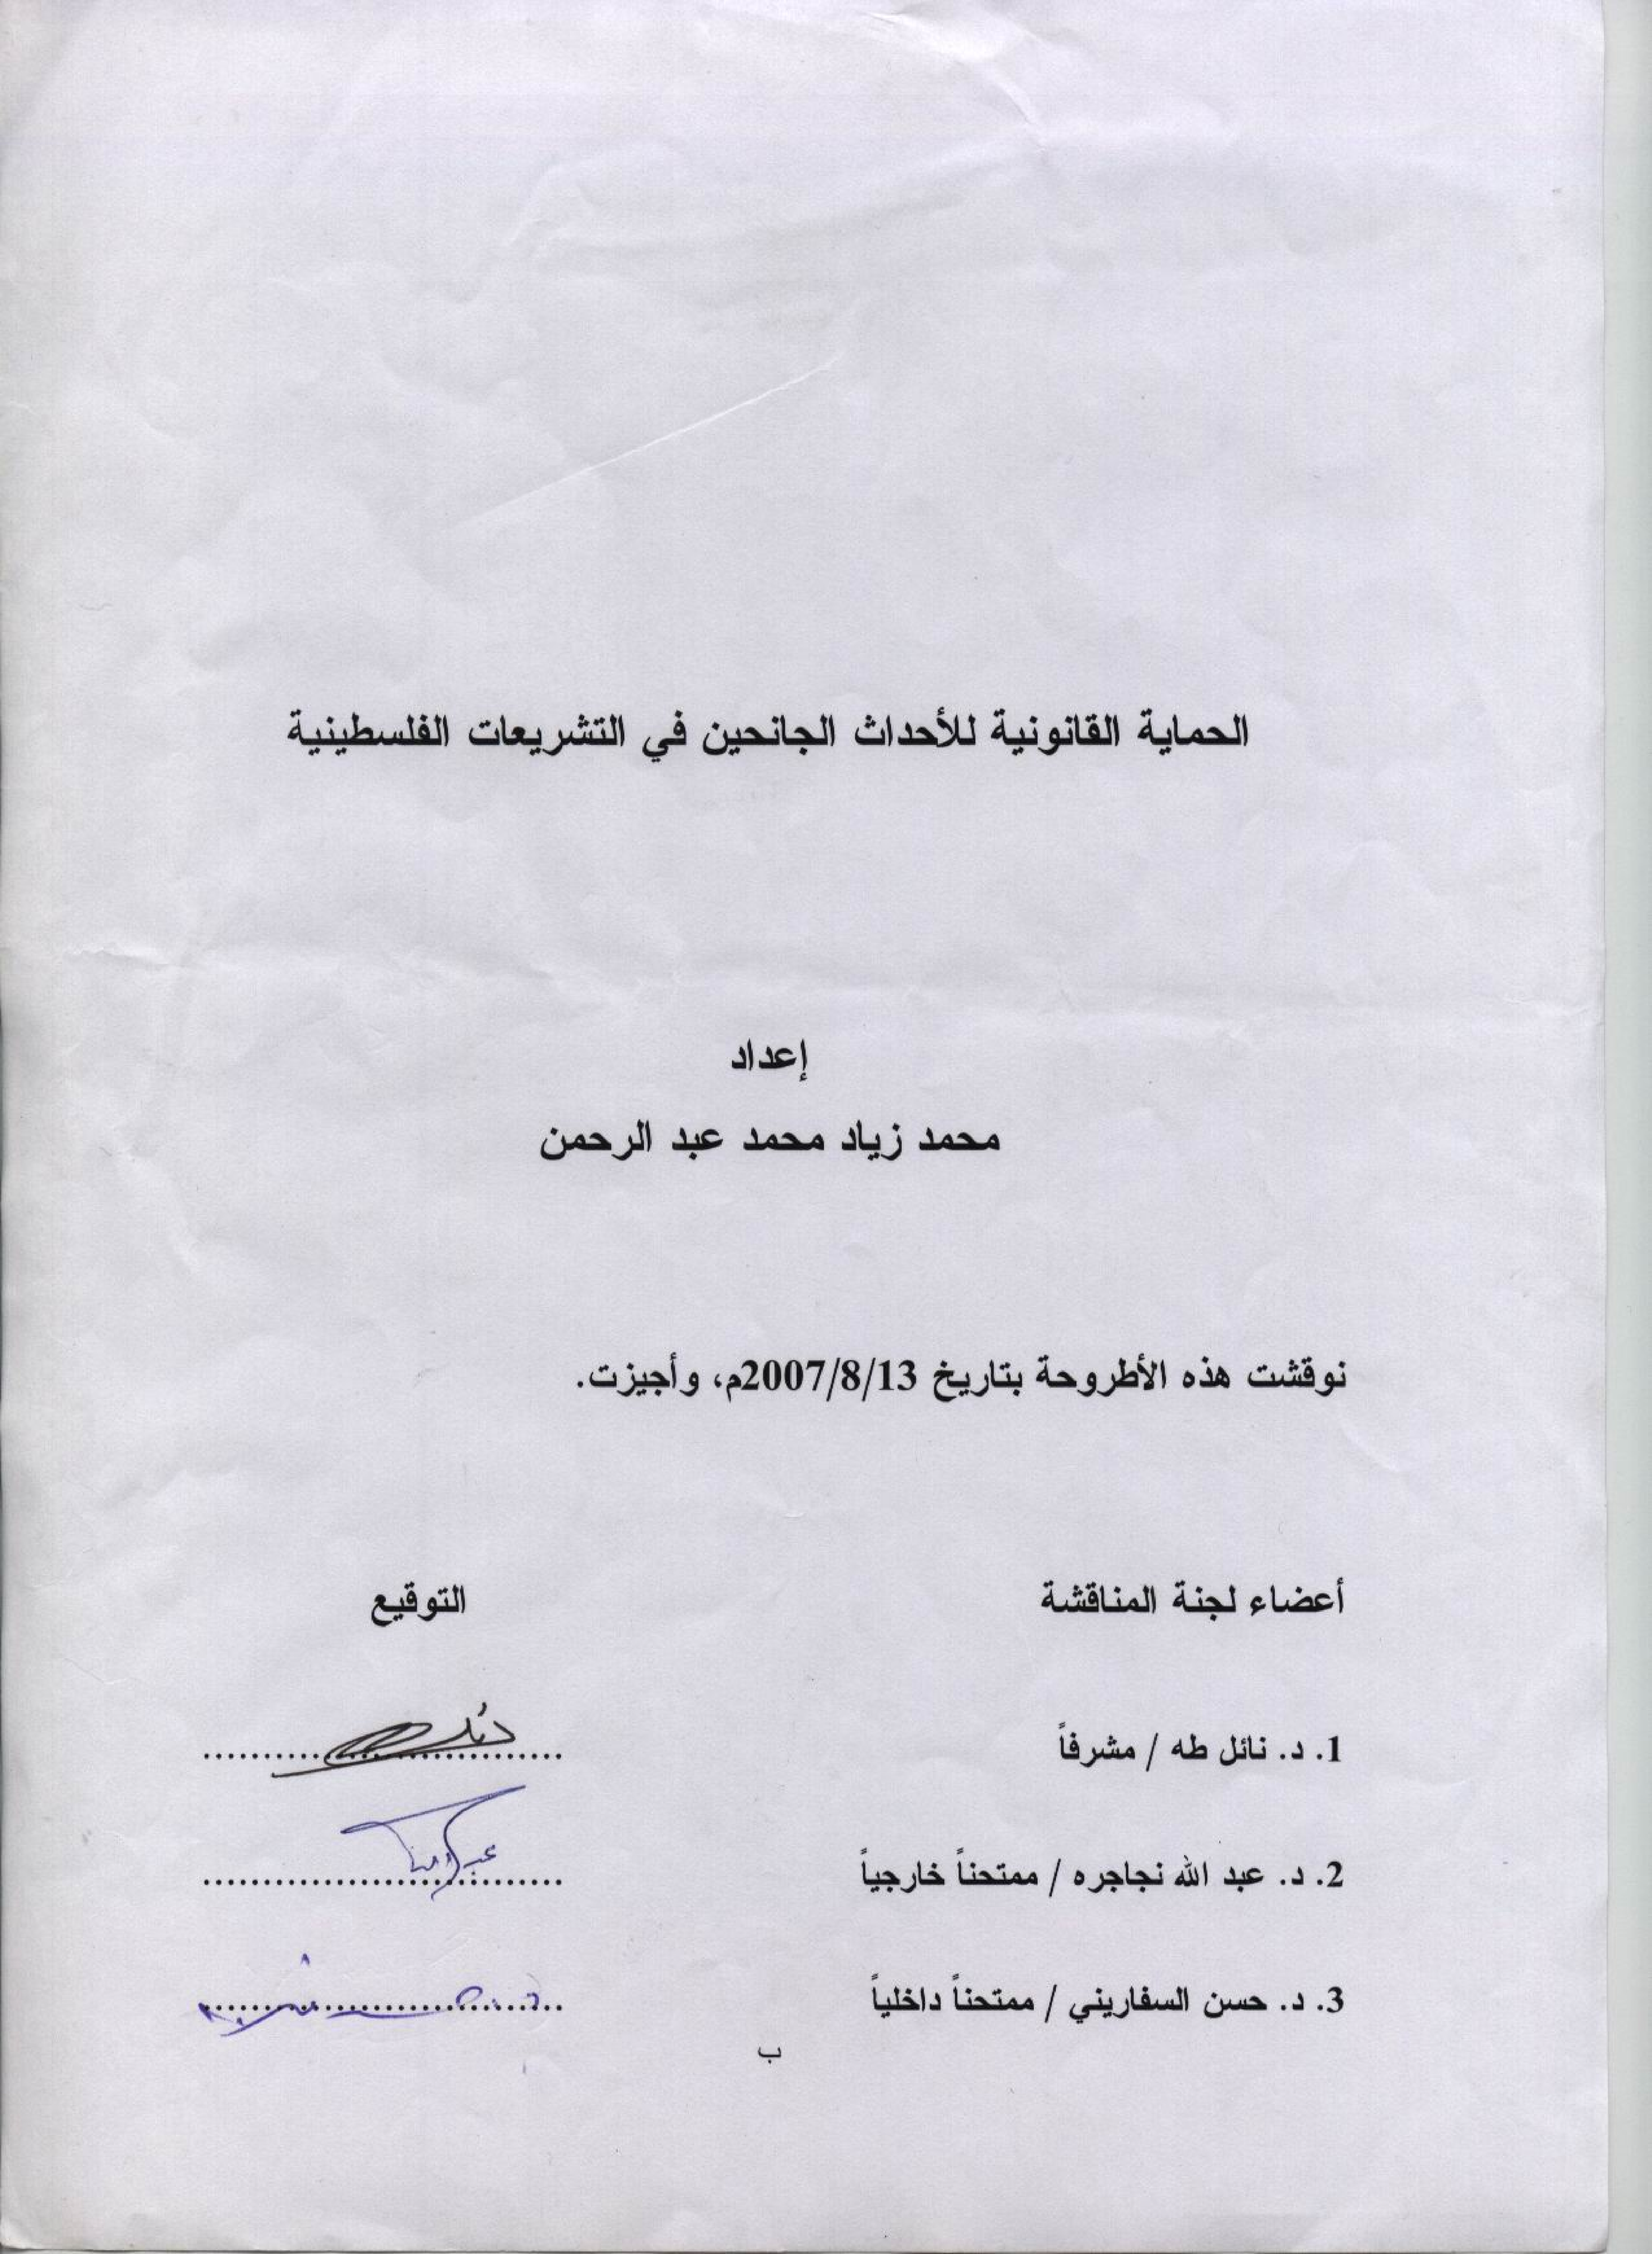 الحماية القانونية للأحداث الجانحين في التشريعات الفلسطينية
إعداد
محمد زياد محمد عبد الرحمن
نوقشت هذه الأطروحة بتاريخ 2007/8/13م، وأجيزت.
أعضاء لجنة المناقشة
التوقيع
1. د. نائل طه / مشرفاً
..............................
2. د. عبد الله نجاجره / ممتحناً خارجياً
..............................
3. د. حسن السفاريني / ممتحناً داخلياً
..............................
ب